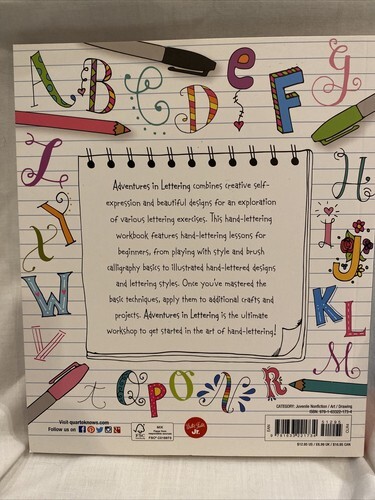 A B C D e F G
Z H
Adventures in Lettering combines creative self-
expression and beautiful designs for an exploration
of various lettering exercises. This hand-lettering
workbook features hand-lettering lessons for
beginners, from playing with style and brush
calligraphy basics to illustrated hand-lettered designs
and lettering styles. Once you've mastered the
basic techniques, apply them to additional crafts and
projects. Adventures in Lettering is the ultimate
workshop to get started in the art of hand-lettering!
Y I
X J
W K L
V M
t Q P O N R
Visit quartoknows.com
Follow us on
FSC
MIX
Walter Foster
Jr.
CATEGORY: Juvenile Nonfiction / Art / Drawing
ISBN: 978-1-63322-173-4